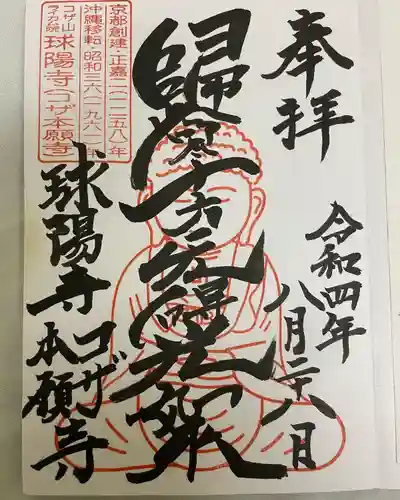 奉拝
令和四年
八月二十八日
歸命十方無碍光如來
京都創建・正嘉二(一二五八)年
沖縄移転・昭和三六(一九六一)年
コザ山
球陽寺(コザ本願寺)
球陽寺
コザ
本願寺